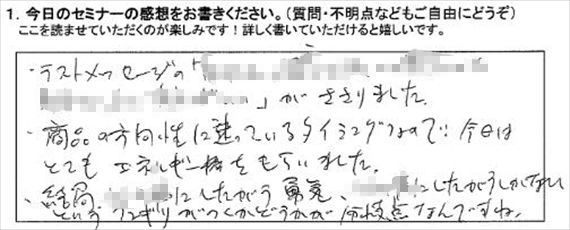 1. 今日のセミナーの感想をお書きください。(質問・不明点などもご自由にどうぞ)
ここを読ませていただくのが楽しみです!詳しく書いていただけると嬉しいです。
・ラストメッセージの「
」がささりました。
・商品の方向性に迷っているタイミングなので、今日は
とても エネルギーをもらいました。
・結局 にしたがう勇気、 にしたがうしかない
という フンギリがつくかどうかが 分岐点なんですね。